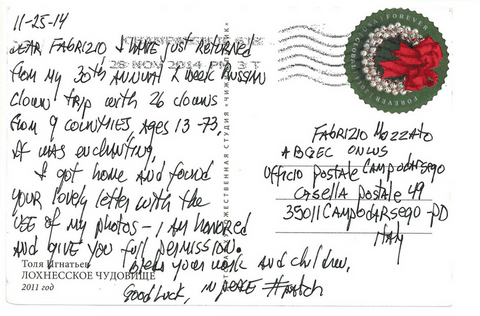 11-25-14
DEAR FABRIZIO I HAVE just RETURNED
from my 30th ANNUAL 2 week Russian
clown trip with 26 clowns
from 9 COUNTRIES, AGES 13-73,
It was enchanting,
I got home and found
your lovely letter with the
use of my photos - I am honored
and give you full permission.
bless your work and children,
Good Luck, in peace
28 NOV 2014 PM 3 T
FOREVER
FOREVER
FABRIZIO MOZZATO
ABGEC ONLUS
UFFICIO POSTALE CAMPODARSEGO
CASELLA POSTALE 49
35011 CAMPODARSEGO-PD
ITALY
Толя Игнатьев
ЛОХНЕССКОЕ ЧУДОВИЩЕ
2011 год
ХУДОЖЕСТВЕННАЯ СТУДИЯ